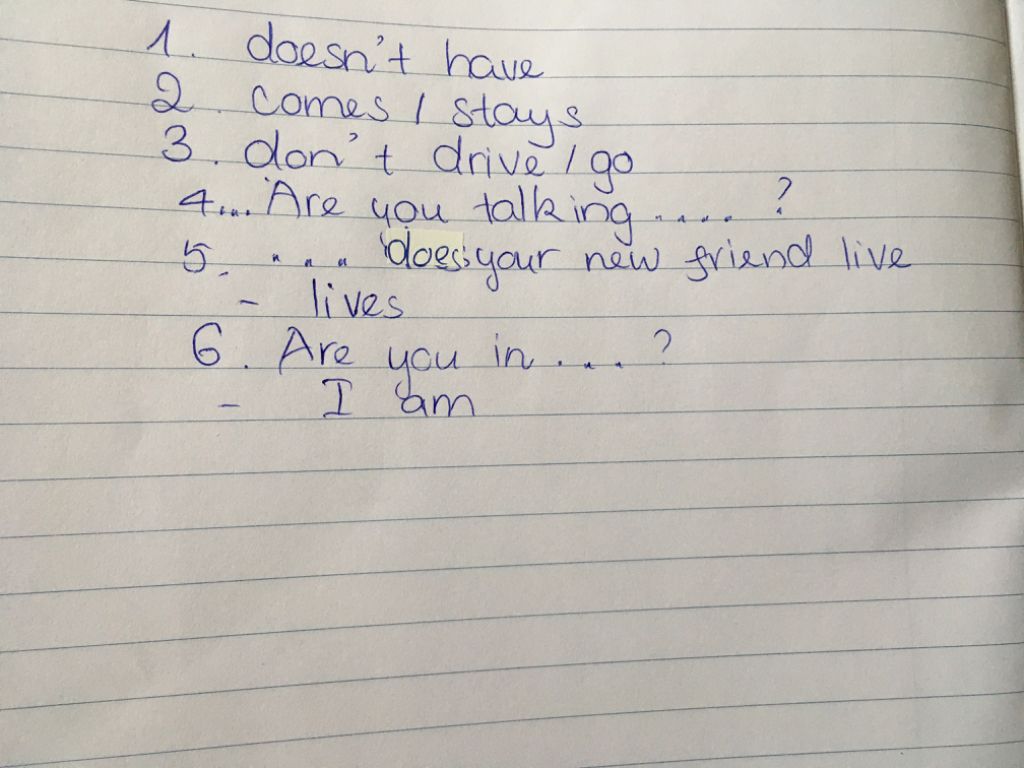 1. doesn't have
2. comes / stays
3. don't drive / go
4... Are you talking .... ?
5. ... does your new friend live
- lives
6. Are you in .... ?
- I am